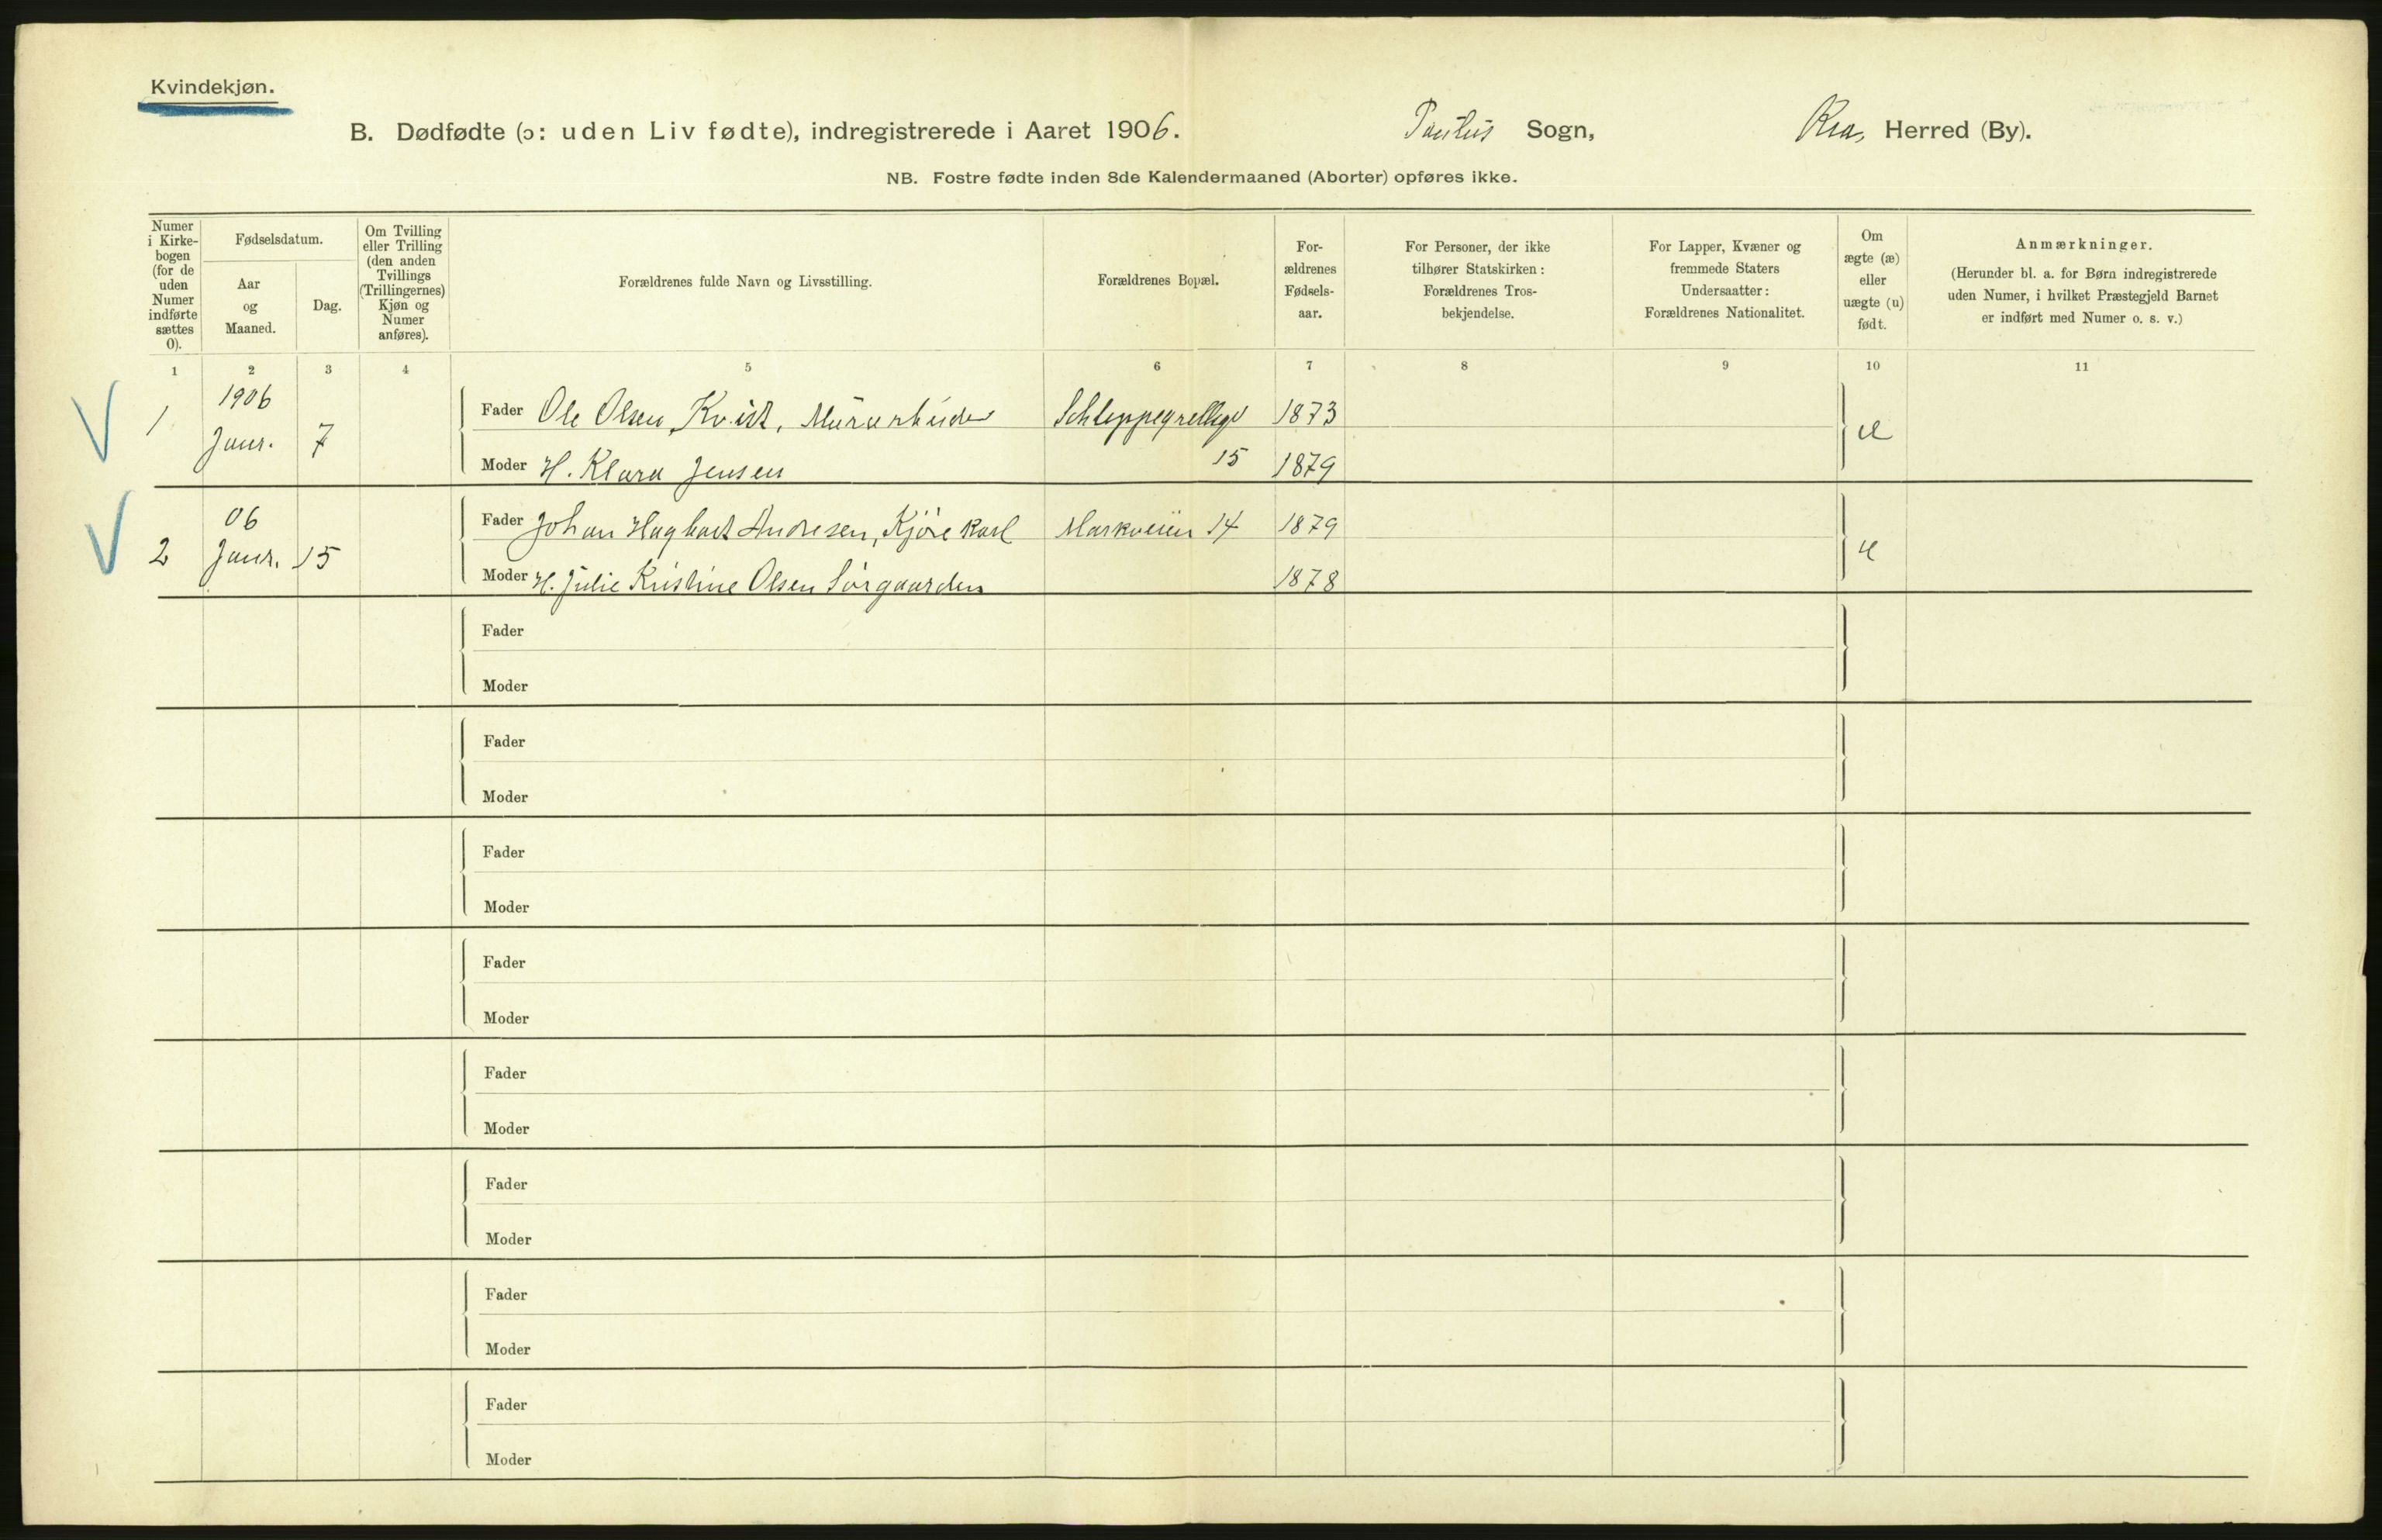 Kvindekjøn.
B. Dødfødte (ɔ: uden Liv fødte), indregistrerede i Aaret 1906. Paulus Sogn, Kra, Herred (By).
NB. Fostre fødte inden 8de Kalendermaaned (Aborter) opføres ikke.
Numer
i Kirke-
bogen
(for de
uden
Numer
indførte
sættes
0).
Fødselsdatum.
Aar
og
Maaned.
Dag.
Om Tvilling
eller Trilling
(den anden
Tvillings
(Trillingernes)
Kjøn og
Numer
anføres).
Forældrenes fulde Navn og Livsstilling.
Forældrenes Bopæl.
For-
ældrenes
Fødsels-
aar.
For Personer, der ikke
tilhører Statskirken:
Forældrenes Tros-
bekjendelse.
For Lapper, Kvæner og
fremmede Staters
Undersaatter:
Forældrenes Nationalitet.
Om
ægte (æ)
eller
uægte (u)
født.
Anmærkninger.
(Herunder bl. a. for Børn indregistrerede
uden Numer, i hvilket Præstegjeld Barnet
er indført med Numer o. s. v.)
1 2 3 4 5 6 7 8 9 10 11
1906
1 Janr. 7
Fader Ole Olsen Kvist, Murarbeider Schleppegrellsgd 1873
Moder H. Klara Jensen 15 1879
æ
06
2 Janr. 15
Fader Johan Hagbart Andresen, Kjørekarl Markveien 14 1879
Moder H. Julie Kristine Olsen Sørgaarden 1878
æ
Fader
Moder
Fader
Moder
Fader
Moder
Fader
Moder
Fader
Moder
Fader
Moder
Fader
Moder
Fader
Moder